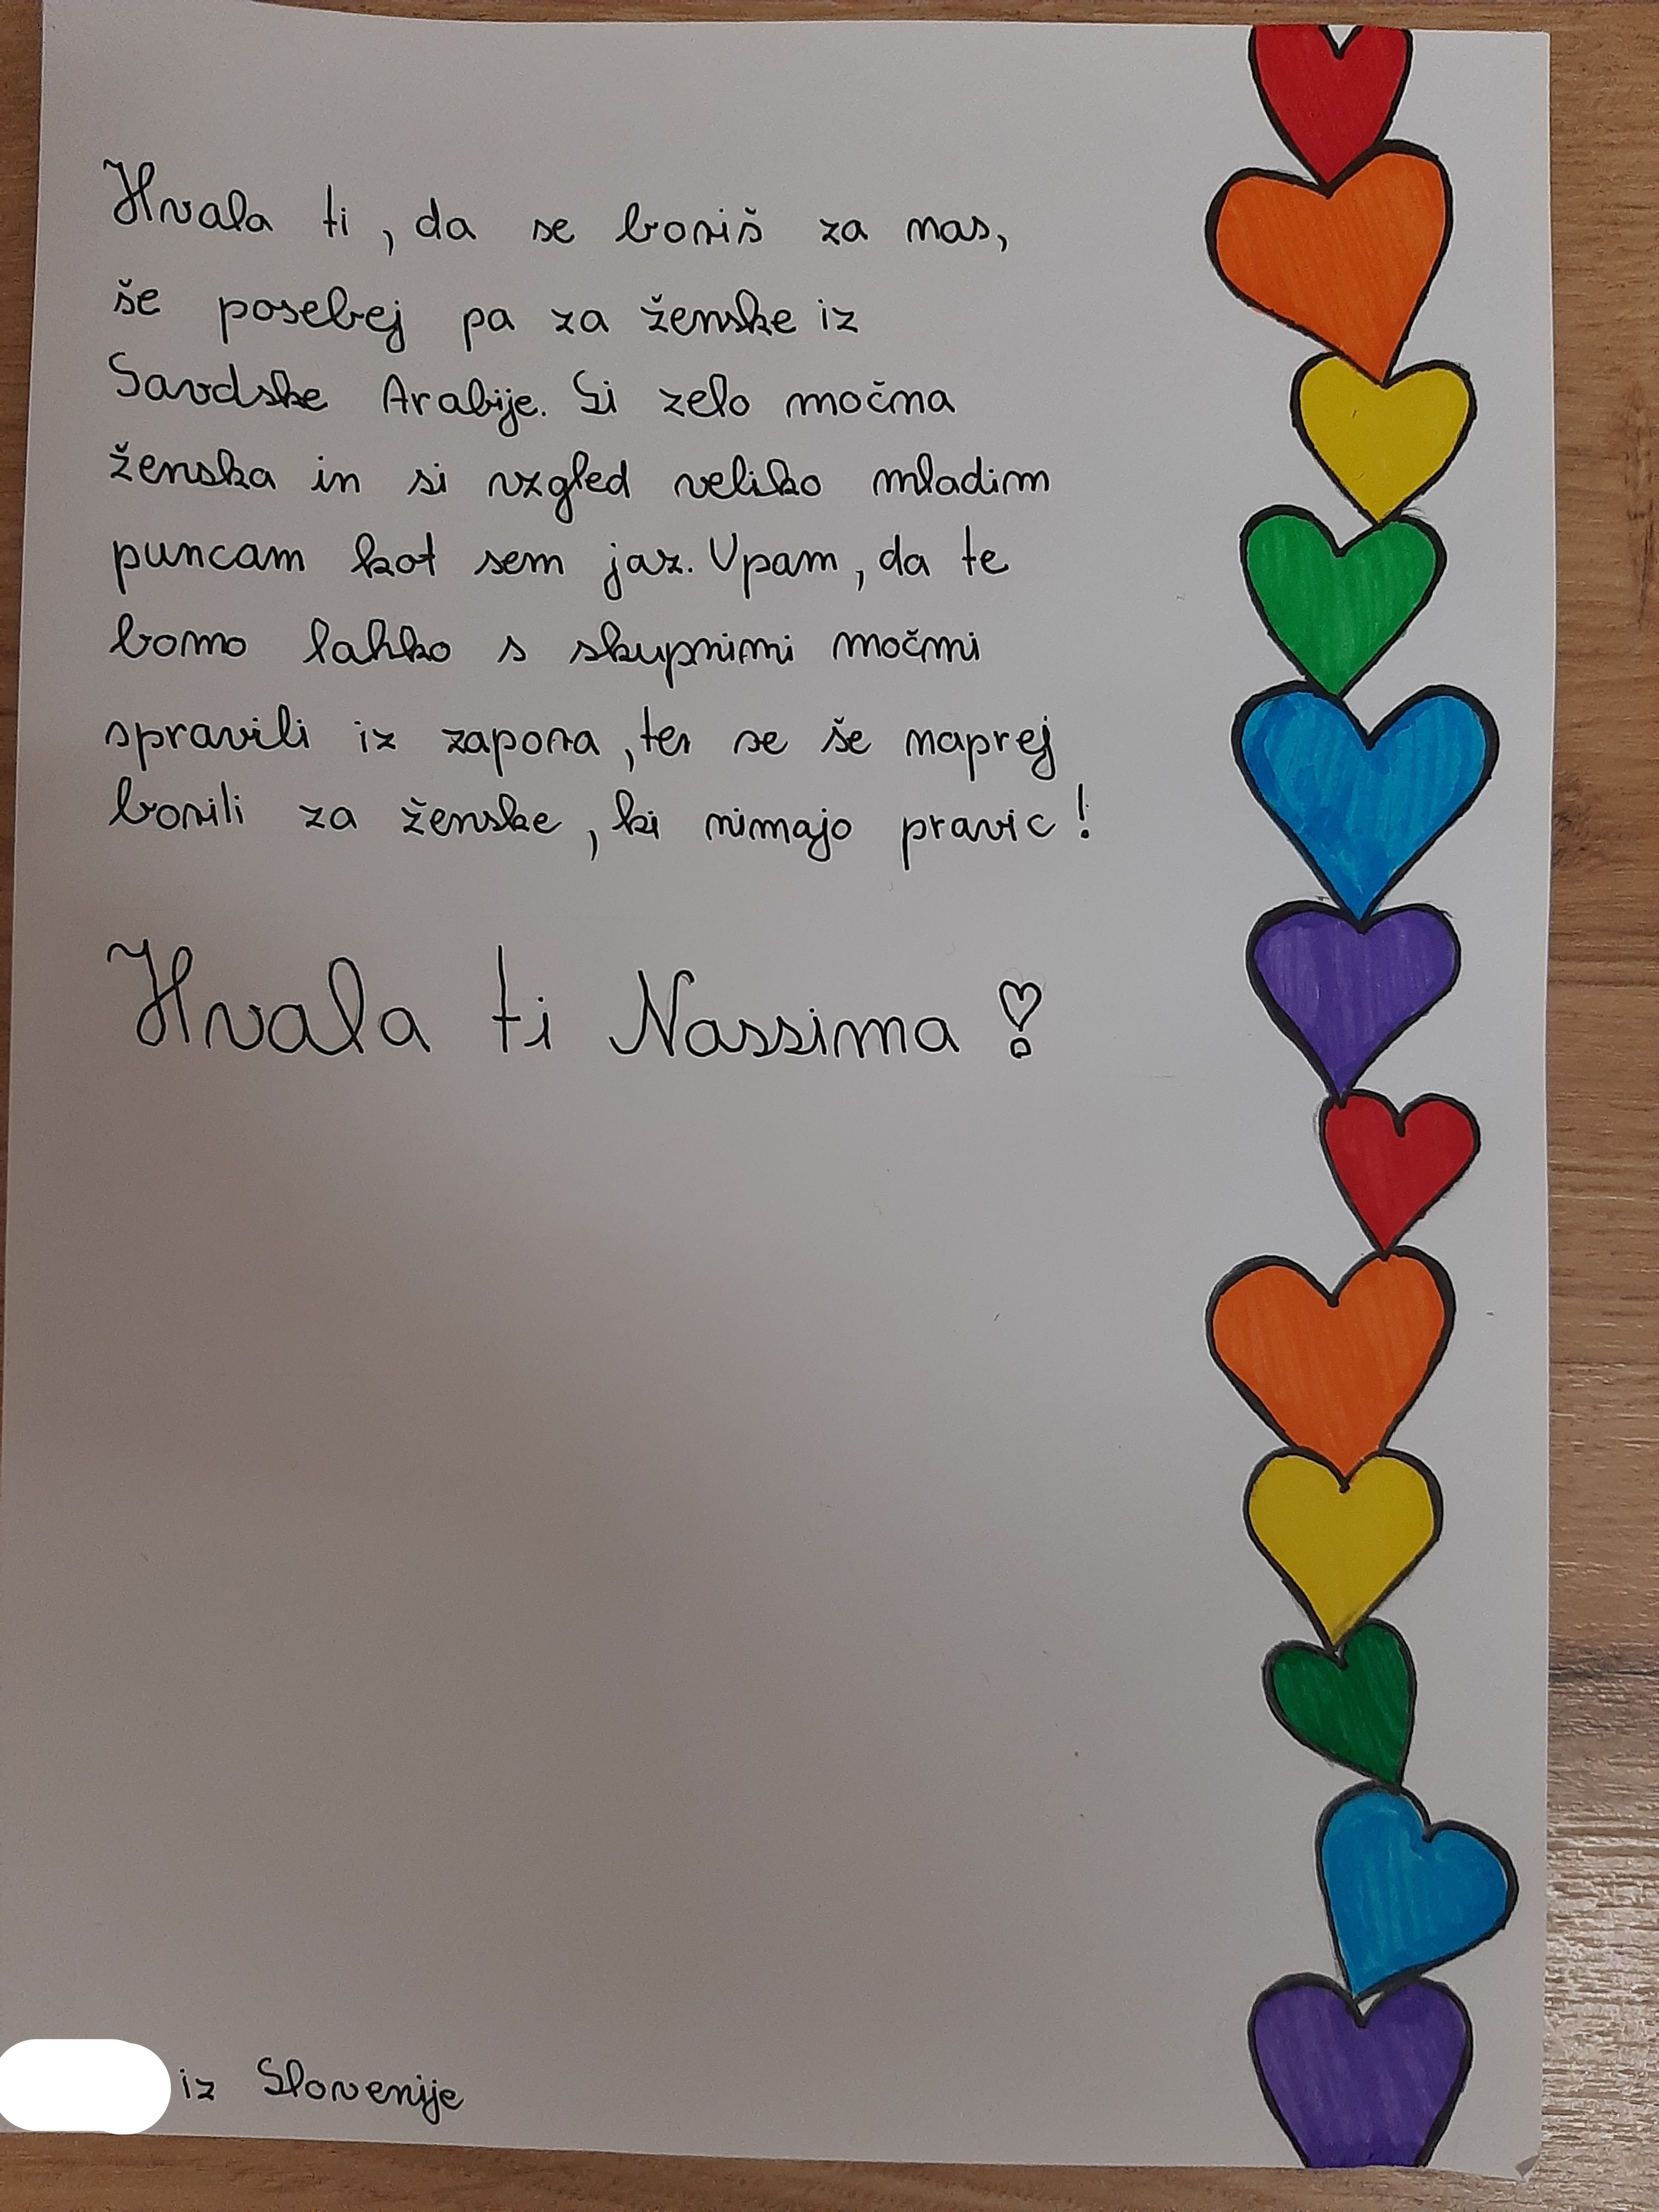 Hvala ti, da se boriš za nas,
še posebej pa za ženske iz
Savdske Arabije. Si zelo močna
ženska in si vzgled veliko mladim
puncam kot sem jaz. Upam, da te
bomo lahko s skupnimi močmi
spravili iz zapora, ter se še naprej
borili za ženske, ki nimajo pravic!
Hvala ti Nassima!
iz Slovenije